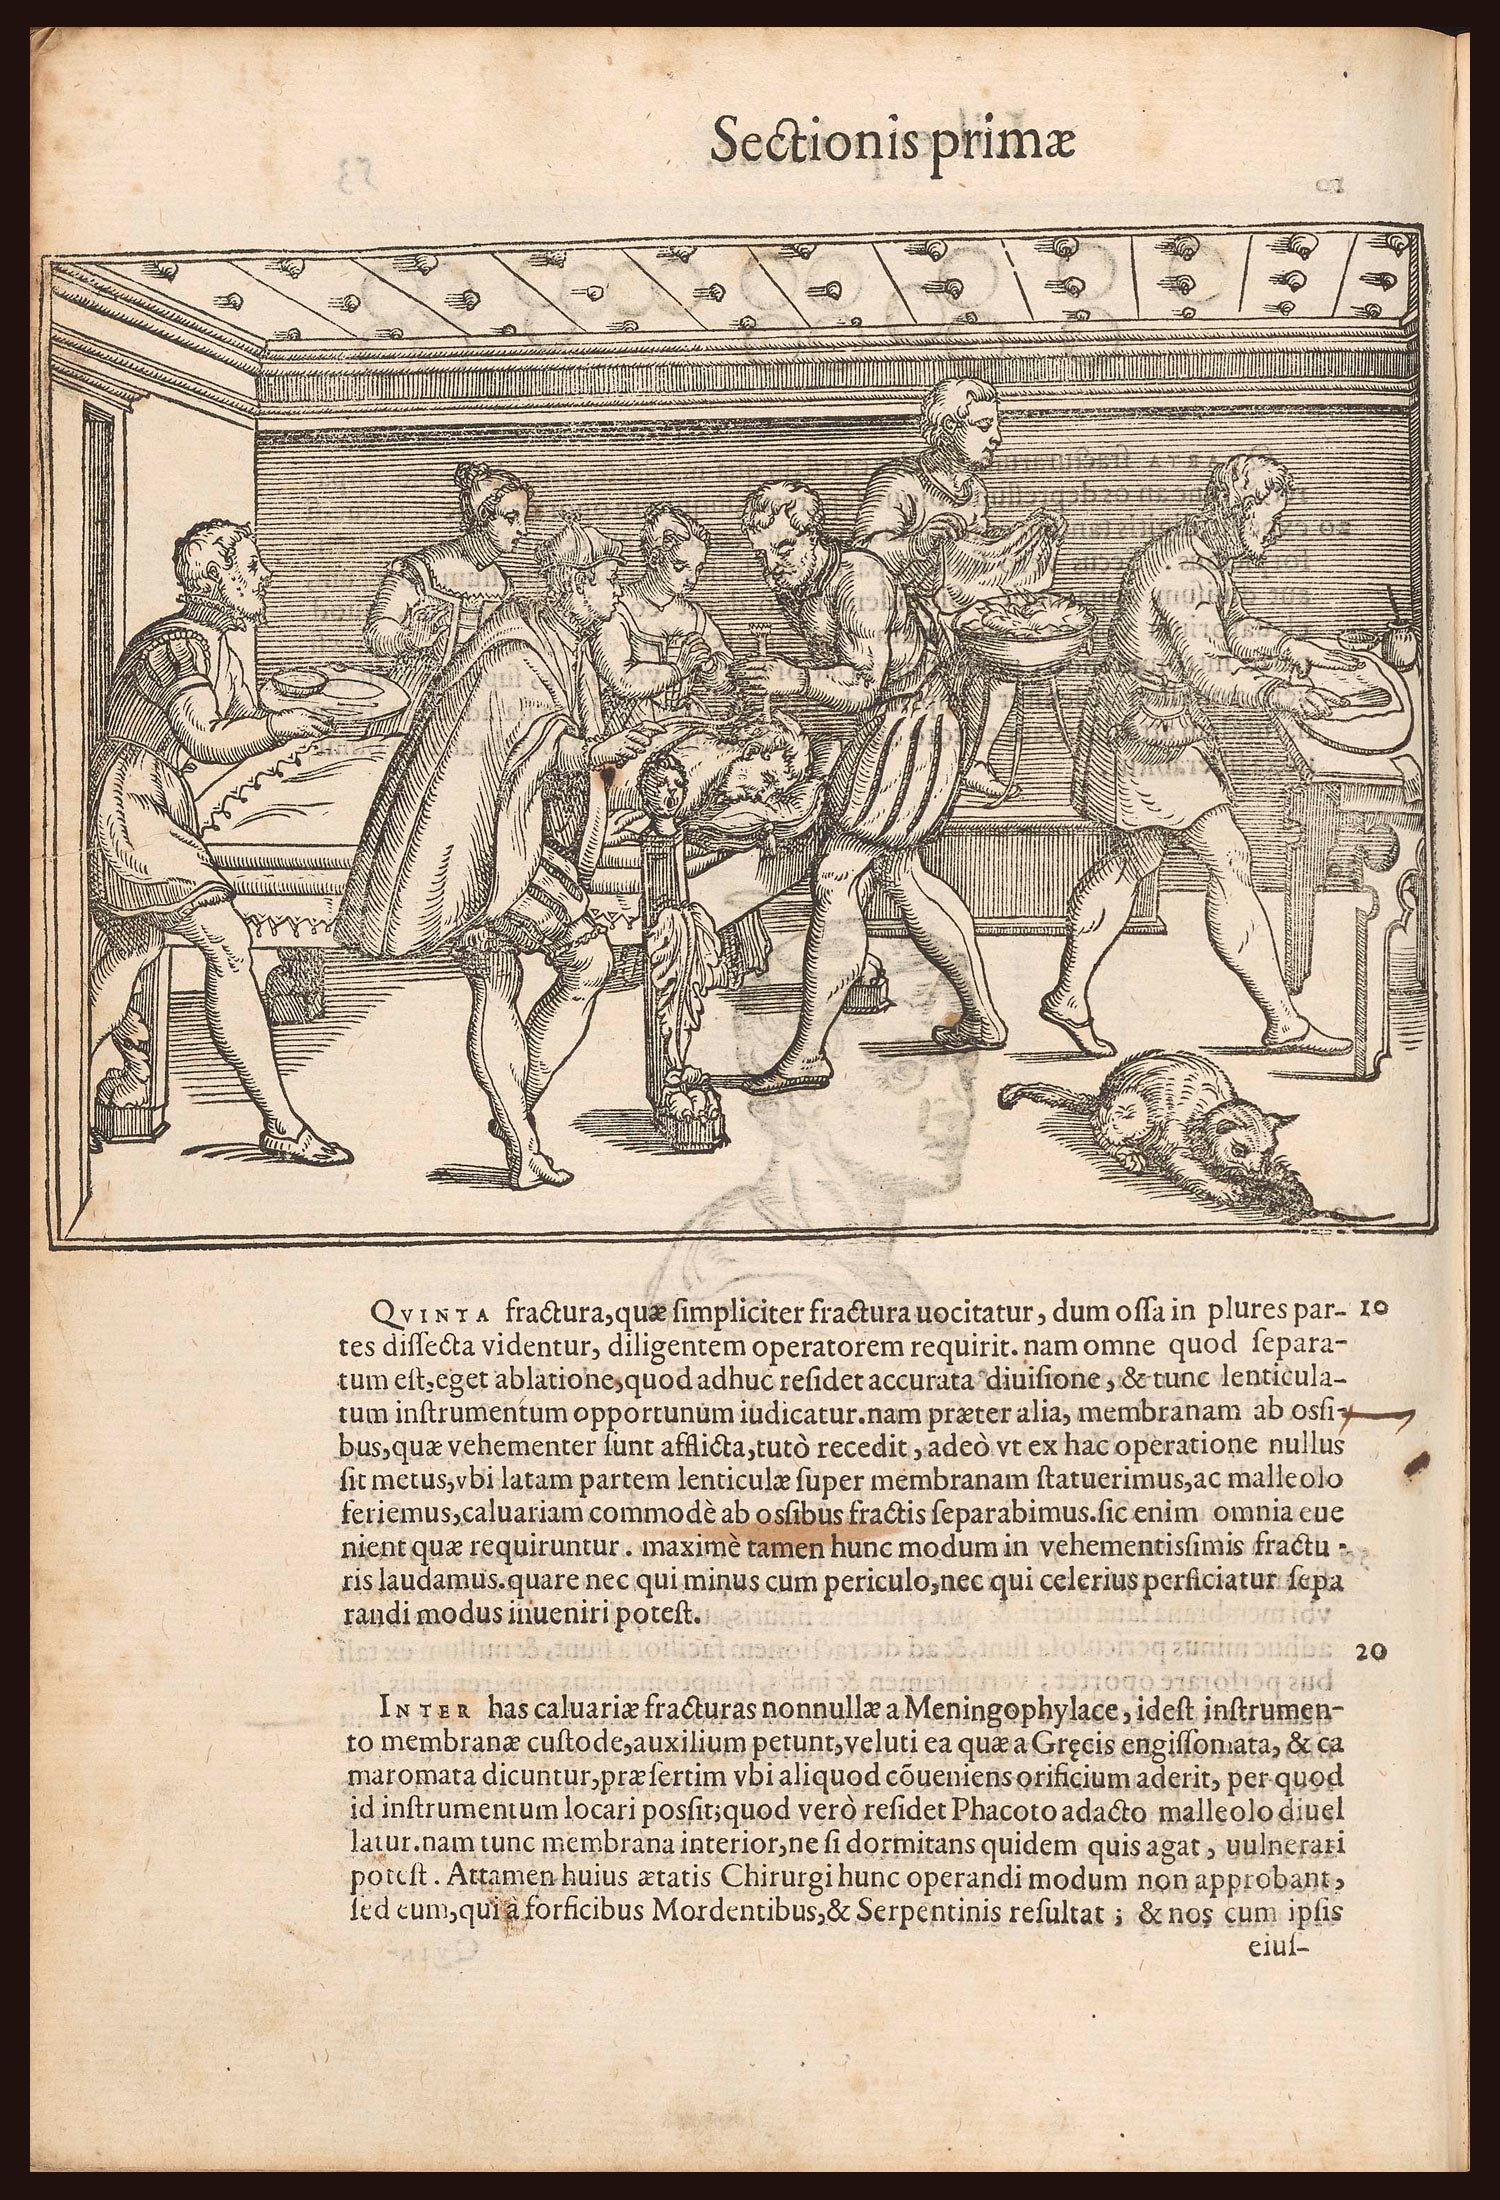 Sectionis primæ
QVINTA fractura, quæ ſimpliciter fractura uocitatur, dum oſſa in plures par- 10
tes diſſecta videntur, diligentem operatorem requirit. nam omne quod ſepara-
tum eſt, eget ablatione, quod adhuc reſidet accurata diuiſione, & tunc lenticula-
tum inſtrumentum opportunum iudicatur. nam præter alia, membranam ab oſſi-
bus, quæ vehementer ſunt afflicta, tutò recedit, adeò vt ex hac operatione nullus
ſit metus, vbi latam partem lenticulæ ſuper membranam ſtatuerimus, ac malleolo
feriemus, caluariam commodè ab oſſibus fractis ſeparabimus. ſic enim omnia eue
nient quæ requiruntur. maximè tamen hunc modum in vehementiſſimis fractu-
ris laudamus. quare nec qui minus cum periculo, nec qui celerius perficiatur ſepa
randi modus inueniri poteſt.
20
INTER has caluariæ fracturas nonnullæ a Meningophylace, ideſt inſtrumen-
to membranæ cuſtode, auxilium petunt, veluti ea quæ a Gręcis engiſſomata, & ca
maromata dicuntur, præſertim vbi aliquod cõueniens orificium aderit, per quod
id inſtrumentum locari poſſit; quod verò reſidet Phacoto adacto malleolo diuel
latur. nam tunc membrana interior, ne ſi dormitans quidem quis agat, uulnerari
poteſt. Attamen huius ætatis Chirurgi hunc operandi modum non approbant,
ſed eum, qui à forficibus Mordentibus, & Serpentinis reſultat; & nos cum ipſis
eiuſ-